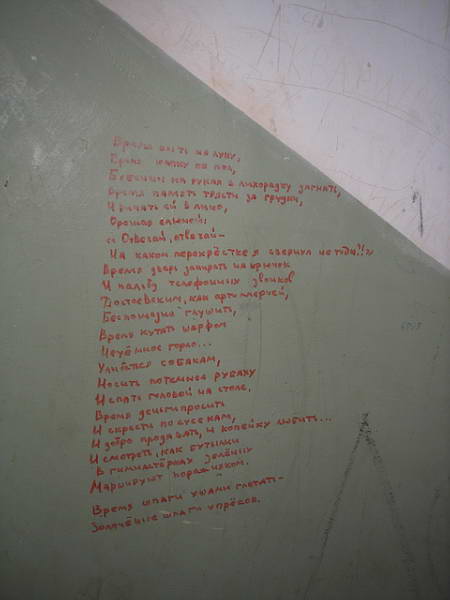 Время выть на луну,
Время шапку об пол,
Бубенчик на рукав в лихорадку загнать,
Время память трясти за грудки,
И кричать ей в лицо,
Орошая слюной:
«Отвечай, отвечай –
На каком перекрёстке я свернул не туда?!!»
Время дверь запирать на крючок
И пальбу телефонных звонков
Достоевским, как артиллерией,
Беспощадно глушить,
Время кутать шарфом
Неуёмное горло...
Улыбаться собакам,
Носить потемнее рубаху
И спать головой на столе.
Время деньги просить
И скрести по сусекам,
И зубро продавать, и копейку любить...
И смотреть, как бутыли
В гимнастёрках зелёных
Маршируют порожняком.
Время шпаги ушами глотать –
Золочёные шпаги упрёков.